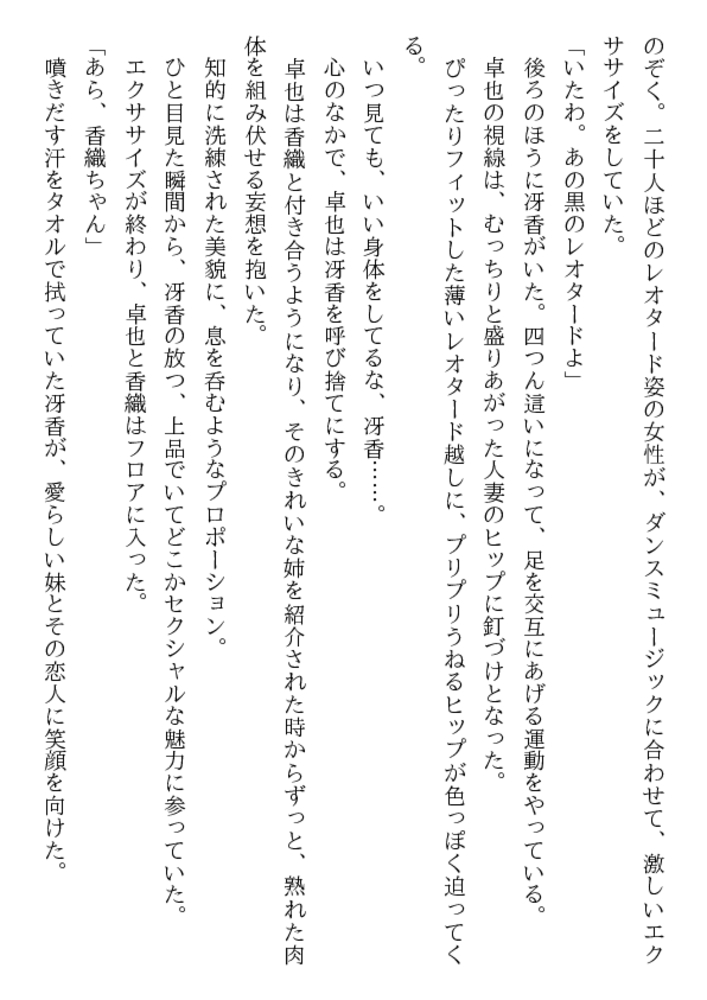 のぞく。二十人ほどのレオタード姿の女性が、ダンスミュージックに合わせて、激しいエク
ササイズをしていた。
「いたわ。あの黒のレオタードよ」
後ろのほうに冴香がいた。四つん這いになって、足を交互にあげる運動をやっている。
卓也の視線は、むっちりと盛りあがった人妻のヒップに釘づけとなった。
ぴったりフィットした薄いレオタード越しに、プリプリうねるヒップが色っぽく迫ってく
る。
いつ見ても、いい身体をしてるな、冴香……。
心のなかで、卓也は冴香を呼び捨てにする。
卓也は香織と付き合うようになり、そのきれいな姉を紹介された時からずっと、熟れた肉
体を組み伏せる妄想を抱いた。
知的に洗練された美貌に、息を呑むようなプロポーション。
ひと目見た瞬間から、冴香の放つ、上品でいてどこかセクシャルな魅力に参っていた。
エクササイズが終わり、卓也と香織はフロアに入った。
「あら、香織ちゃん」
噴きだす汗をタオルで拭っていた冴香が、愛らしい妹とその恋人に笑顔を向けた。